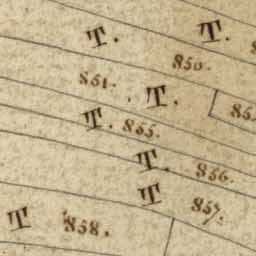 T. T.
850.
851. T.
T. 855.
T. 856.
T 857.
T 858.